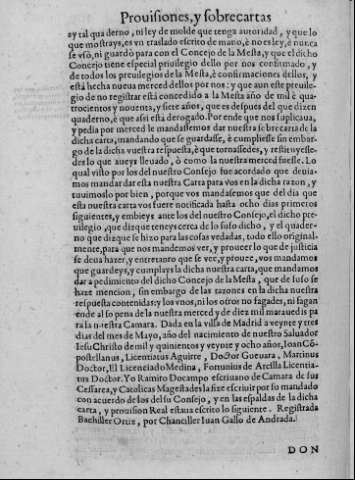 Prouisiones, y sobrecartas
ay tal quaderno, ni ley de molde que tenga autoridad, y que lo
que mostrays, es vn traslado escrito de mano, ò no es ley, è nunca
se vsò, ni guardò para con el Concejo de la Mesta, y que el dicho
Concejo tiene especial priuilegio dello por nos confirmado, y
de todos los preuilegios de la Mesta, è confirmaciones dellos, y
està hecha nueua merced dellos por nos: y que aun este preuile-
gio de no registrar està concedido a la Mesta año de mil è qua-
trocientos y nouenta, y siete años, que es despues del que dizen
quaderno, è que assi està derogado. Por ende que nos suplicaua,
y pedia por merced le mandassemos dar nuestra sobrecarta de la
dicha carta, mandando que se guardasse, è cumpliesse sin embar-
go de la dicha vuestra respuesta, è que tornassedes, y restituyesse-
des lo que aueys lleuado, ò como la nuestra merced fuesse. Lo
qual visto por los del nuestro Consejo fue acordado que deuia-
mos mandar dar esta nuestra Carta para vos en la dicha razon, y
tuuimoslo por bien, porque vos mandamos que del dia que
esta nuestra carta vos fuere notificada hasta ocho dias primeros
siguientes, y embieys ante los del nuestro Consejo, el dicho pre-
uilegio, que dizque teneys cerca de lo suso dicho, y el quader-
no que dizque se hizo para las cosas vedadas, todo ello original-
mente, para que nos mandemos ver, y proueer lo que de justicia
se deua hazer, y entretanto que se ver, y prouee, vos mandamos
que guardeys, y cumplays la dicha nuestra carta, que mandamos
dar a pedimiento del dicho Concejo de la Mesta, que de suso se
haze mencion, sin embargo de las razones en la dicha nuestra
respuesta contenidas: y los vnos, ni los otros no fagades, ni fagan
ende al so pena de la nuestra merced y de diez mil marauedis pa
ra la nuestra Camara. Dada en la villa de Madrid a veynte y tres
dias del mes de Mayo, año del nacimiento de nuestro Saluador
Iesu Christo de mil y quinientos y veynte y ocho años, Ioan Cō-
postellanus, Licentiatus Aguirre, Doctor Gueuara, Martinus
Doctor, El Licenciado Medina, Fortunius de Arcilla Licentia-
tus Doctor. Yo Ramiro Docampo escriuano de Camara de sus
Cessarea, y Catolicas Magestades la fize escriuir por su mandado
con acuerdo de los del su Consejo, y en las espaldas de la dicha
carta, y prouision Real estaua escrito lo siguiente. Registrada
Bachiller Ortiz, por Chanciller Iuan Gallo de Andrada.
DON